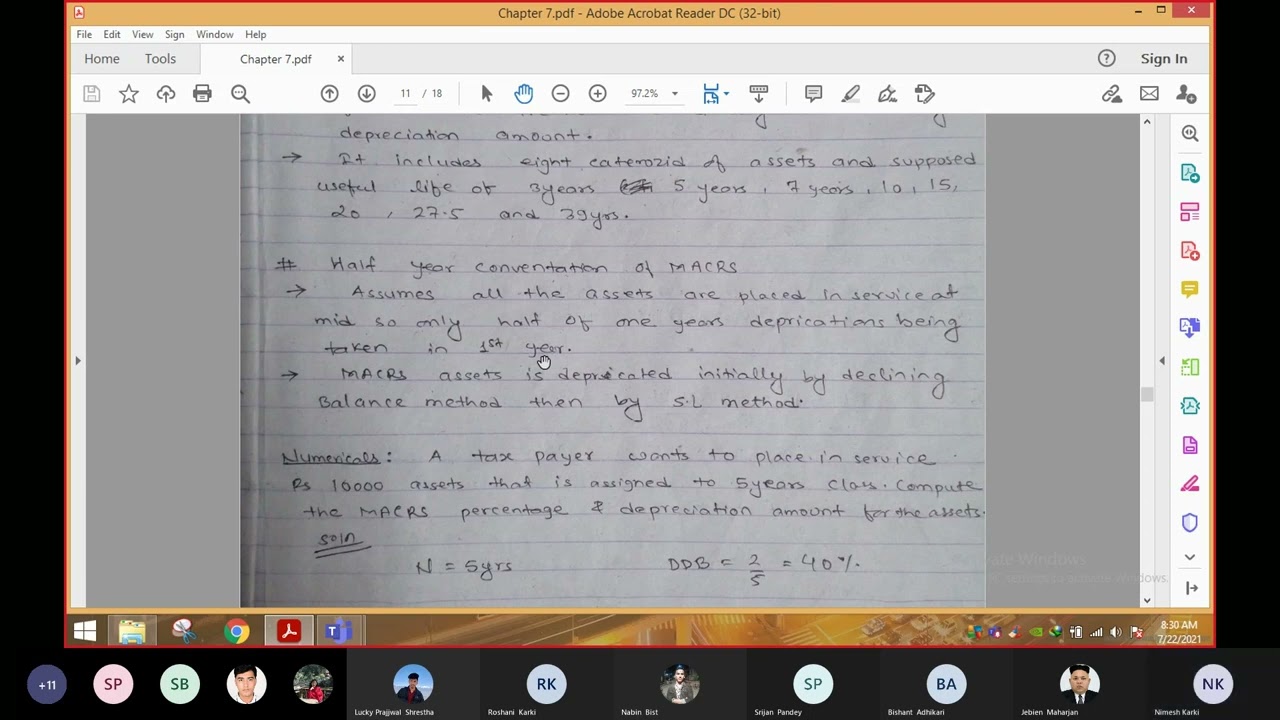 Chapter 7.pdf - Adobe Acrobat Reader DC (32-bit)
File Edit View Sign Window Help
Home Tools Chapter 7.pdf × Sign In
11 / 18 97.2%
depreciation amount.
→ It includes eight caterozid of assets and supposed
useful life of 3years 5 years, 7 years, 10, 15,
20, 27.5 and 39yrs.
# Half year conventation of MACRS
→ Assumes all the assets are placed in service at
mid so only half of one years deprications being
taken in 1st year.
→ MACRS assets is depricated initially by declining
Balance method then by S.L method.
Numericals: A tax payer wants to place in service
Rs 10000 assets that is assigned to 5years class. Compute
the MACRS percentage & depreciation amount for the assets.
soln
N = 5yrs DDB = 2/5 = 40%.
8:30 AM
7/22/2021
+11 SP SB RK SP BA NK
Lucky Prajjwal Shrestha Roshani Karki Nabin Bist Srijan Pandey Bishant Adhikari Jebien Maharjan Nimesh Karki